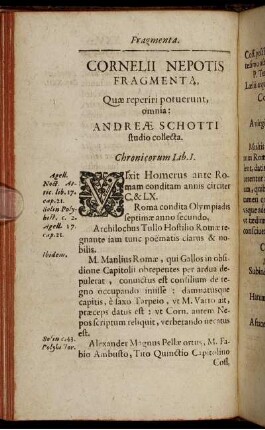 Fragmenta.
CORNELII NEPOTIS
FRAGMENTA,
Quæ reperiri potuerunt,
omnia:
ANDREÆ SCHOTTI
studio collecta.
Chronicorum Lib. I.
Agell.
Noct. At-
tic. lib. 17.
cap. 21.
Solin Poly-
hist. c. 2.
Agell. 17.
cap. 21.
Ibidem.
Solin c. 43.
Polyhistor.
VIxit Homerus ante Ro-
mam conditam annis circiter
C. & LX.
Roma condita Olympiadis
septimæ anno secundo.
Archilochus Tullo Hostilio Romæ re-
gnante iam tunc poëmatis clarus & no-
bilis.
M. Manlius Romæ, qui Gallos in obsi-
dione Capitolii obrepentes per ardua de-
pulerat, convictus est consilium de re-
gno occupando inisse: damnatusque
capitis, è saxo Tarpeio, vt M. Varro ait,
præceps datus est: vt Corn. autem Ne-
pos scriptum reliquit, verberando necatus
est.
Alexander Magnus Pellæ ortus, M. Fa-
bio Ambusto, Tito Quinctio Capitolino
Cosl.